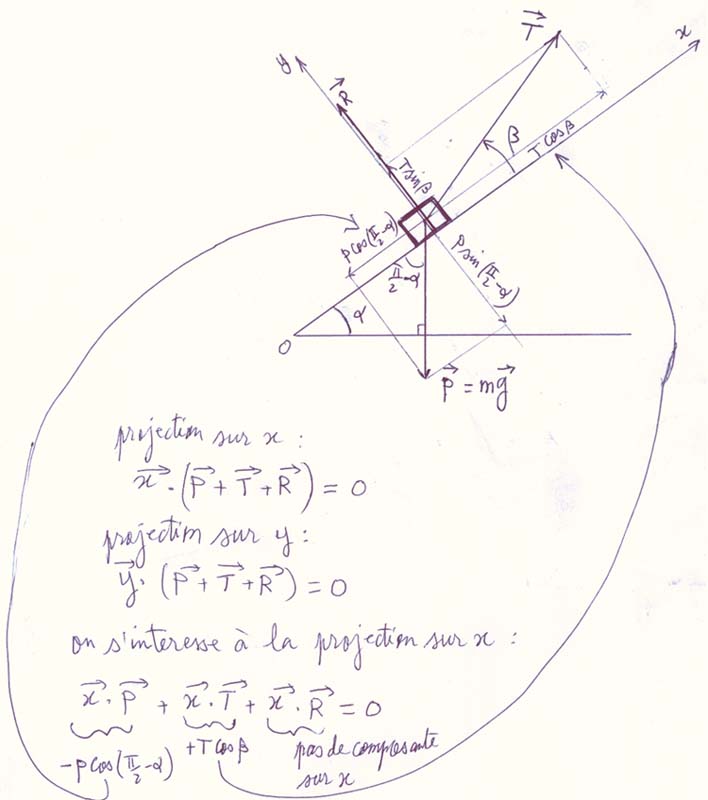 T⃗
x
y
R⃗
β
T cosβ
T sinβ
pcos(π/2-α)
Psin(π/2-α)
π/2-α
α
O
P⃗ = mg⃗
projection sur x :
x⃗ . (P⃗ + T⃗ + R⃗) = 0
projection sur y :
y⃗ . (P⃗ + T⃗ + R⃗) = 0
on s'interesse à la projection sur x :
x⃗ . P⃗ + x⃗ . T⃗ + x⃗ . R⃗ = 0
-pcos(π/2-α) +Tcosβ pas de composante
sur x